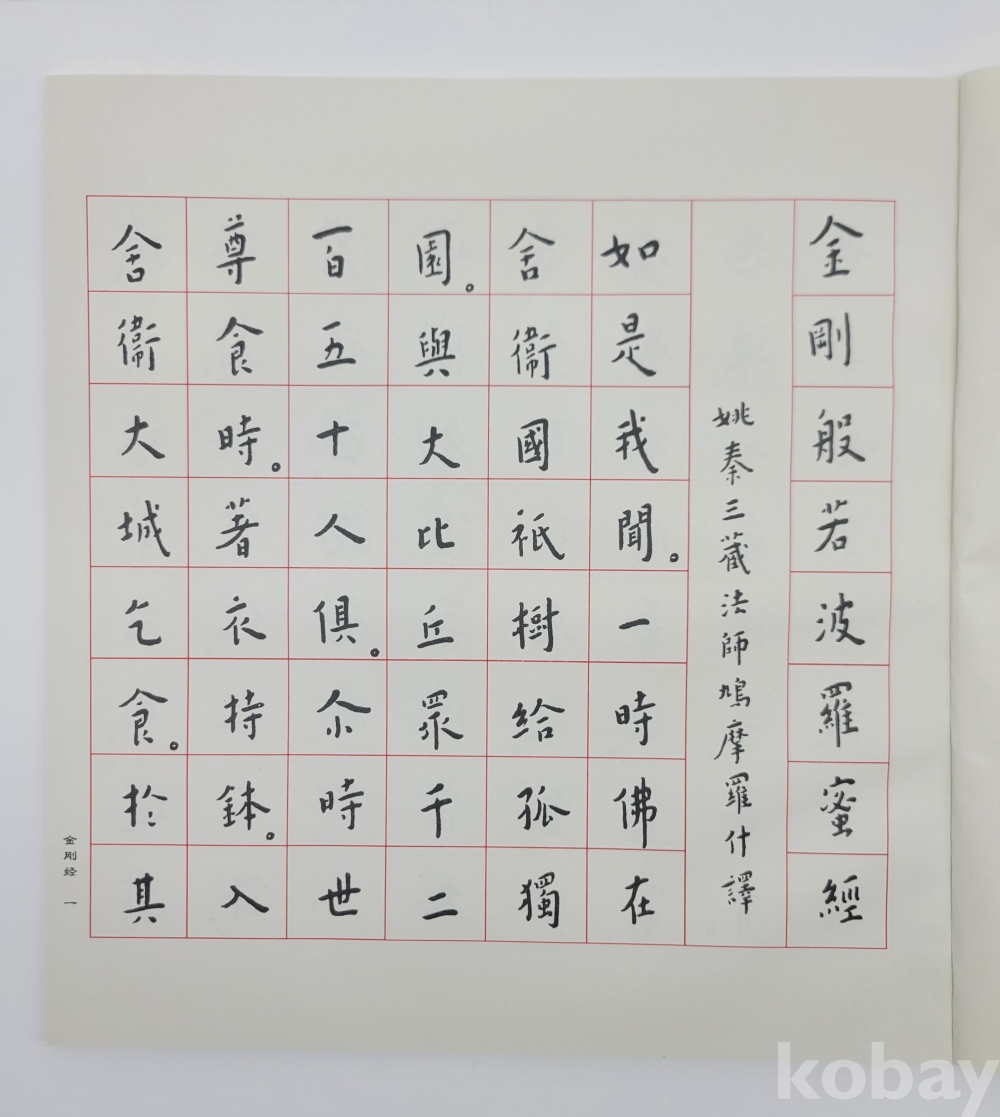 金剛般若波羅蜜經
姚秦三藏法師鳩摩羅什譯
如是我聞。一時佛在
舍衞國祇樹給孤獨
園。與大比丘眾千二
百五十人俱。尒時世
尊食時。著衣持鉢。入
舍衞大城乞食。於其
金刚经 一
kobay